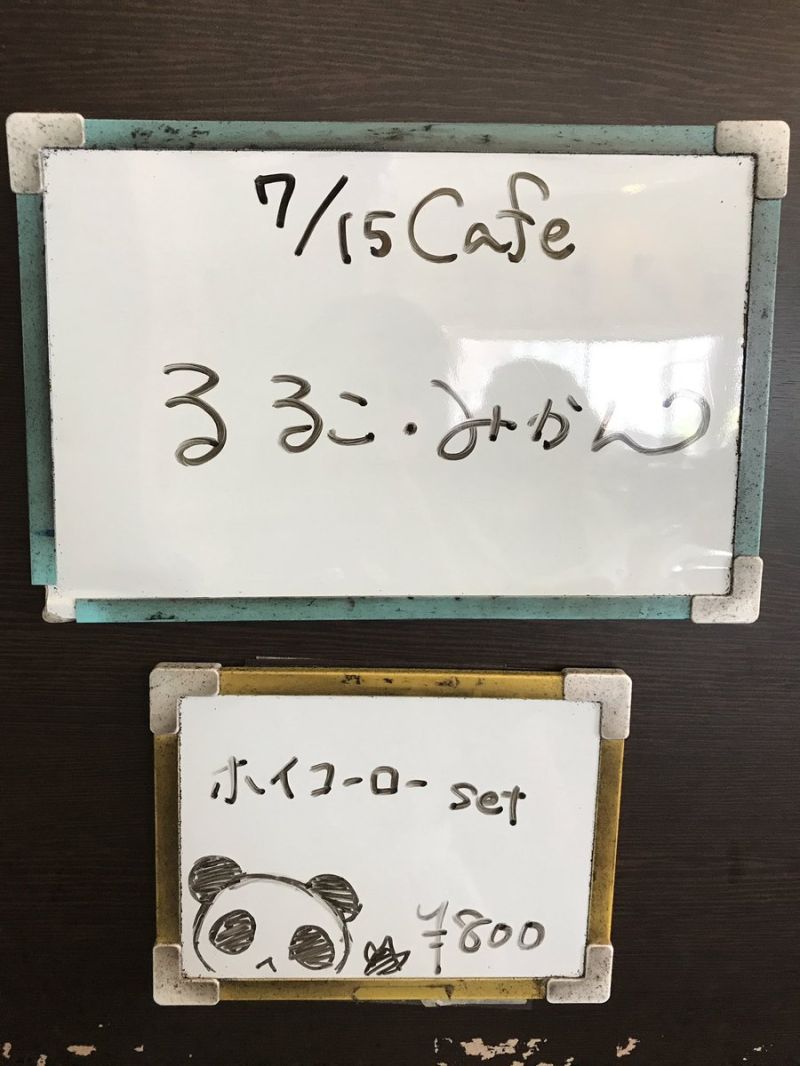 7/15 Cafe
るるこ・みかん
ホイコーロー set
¥800